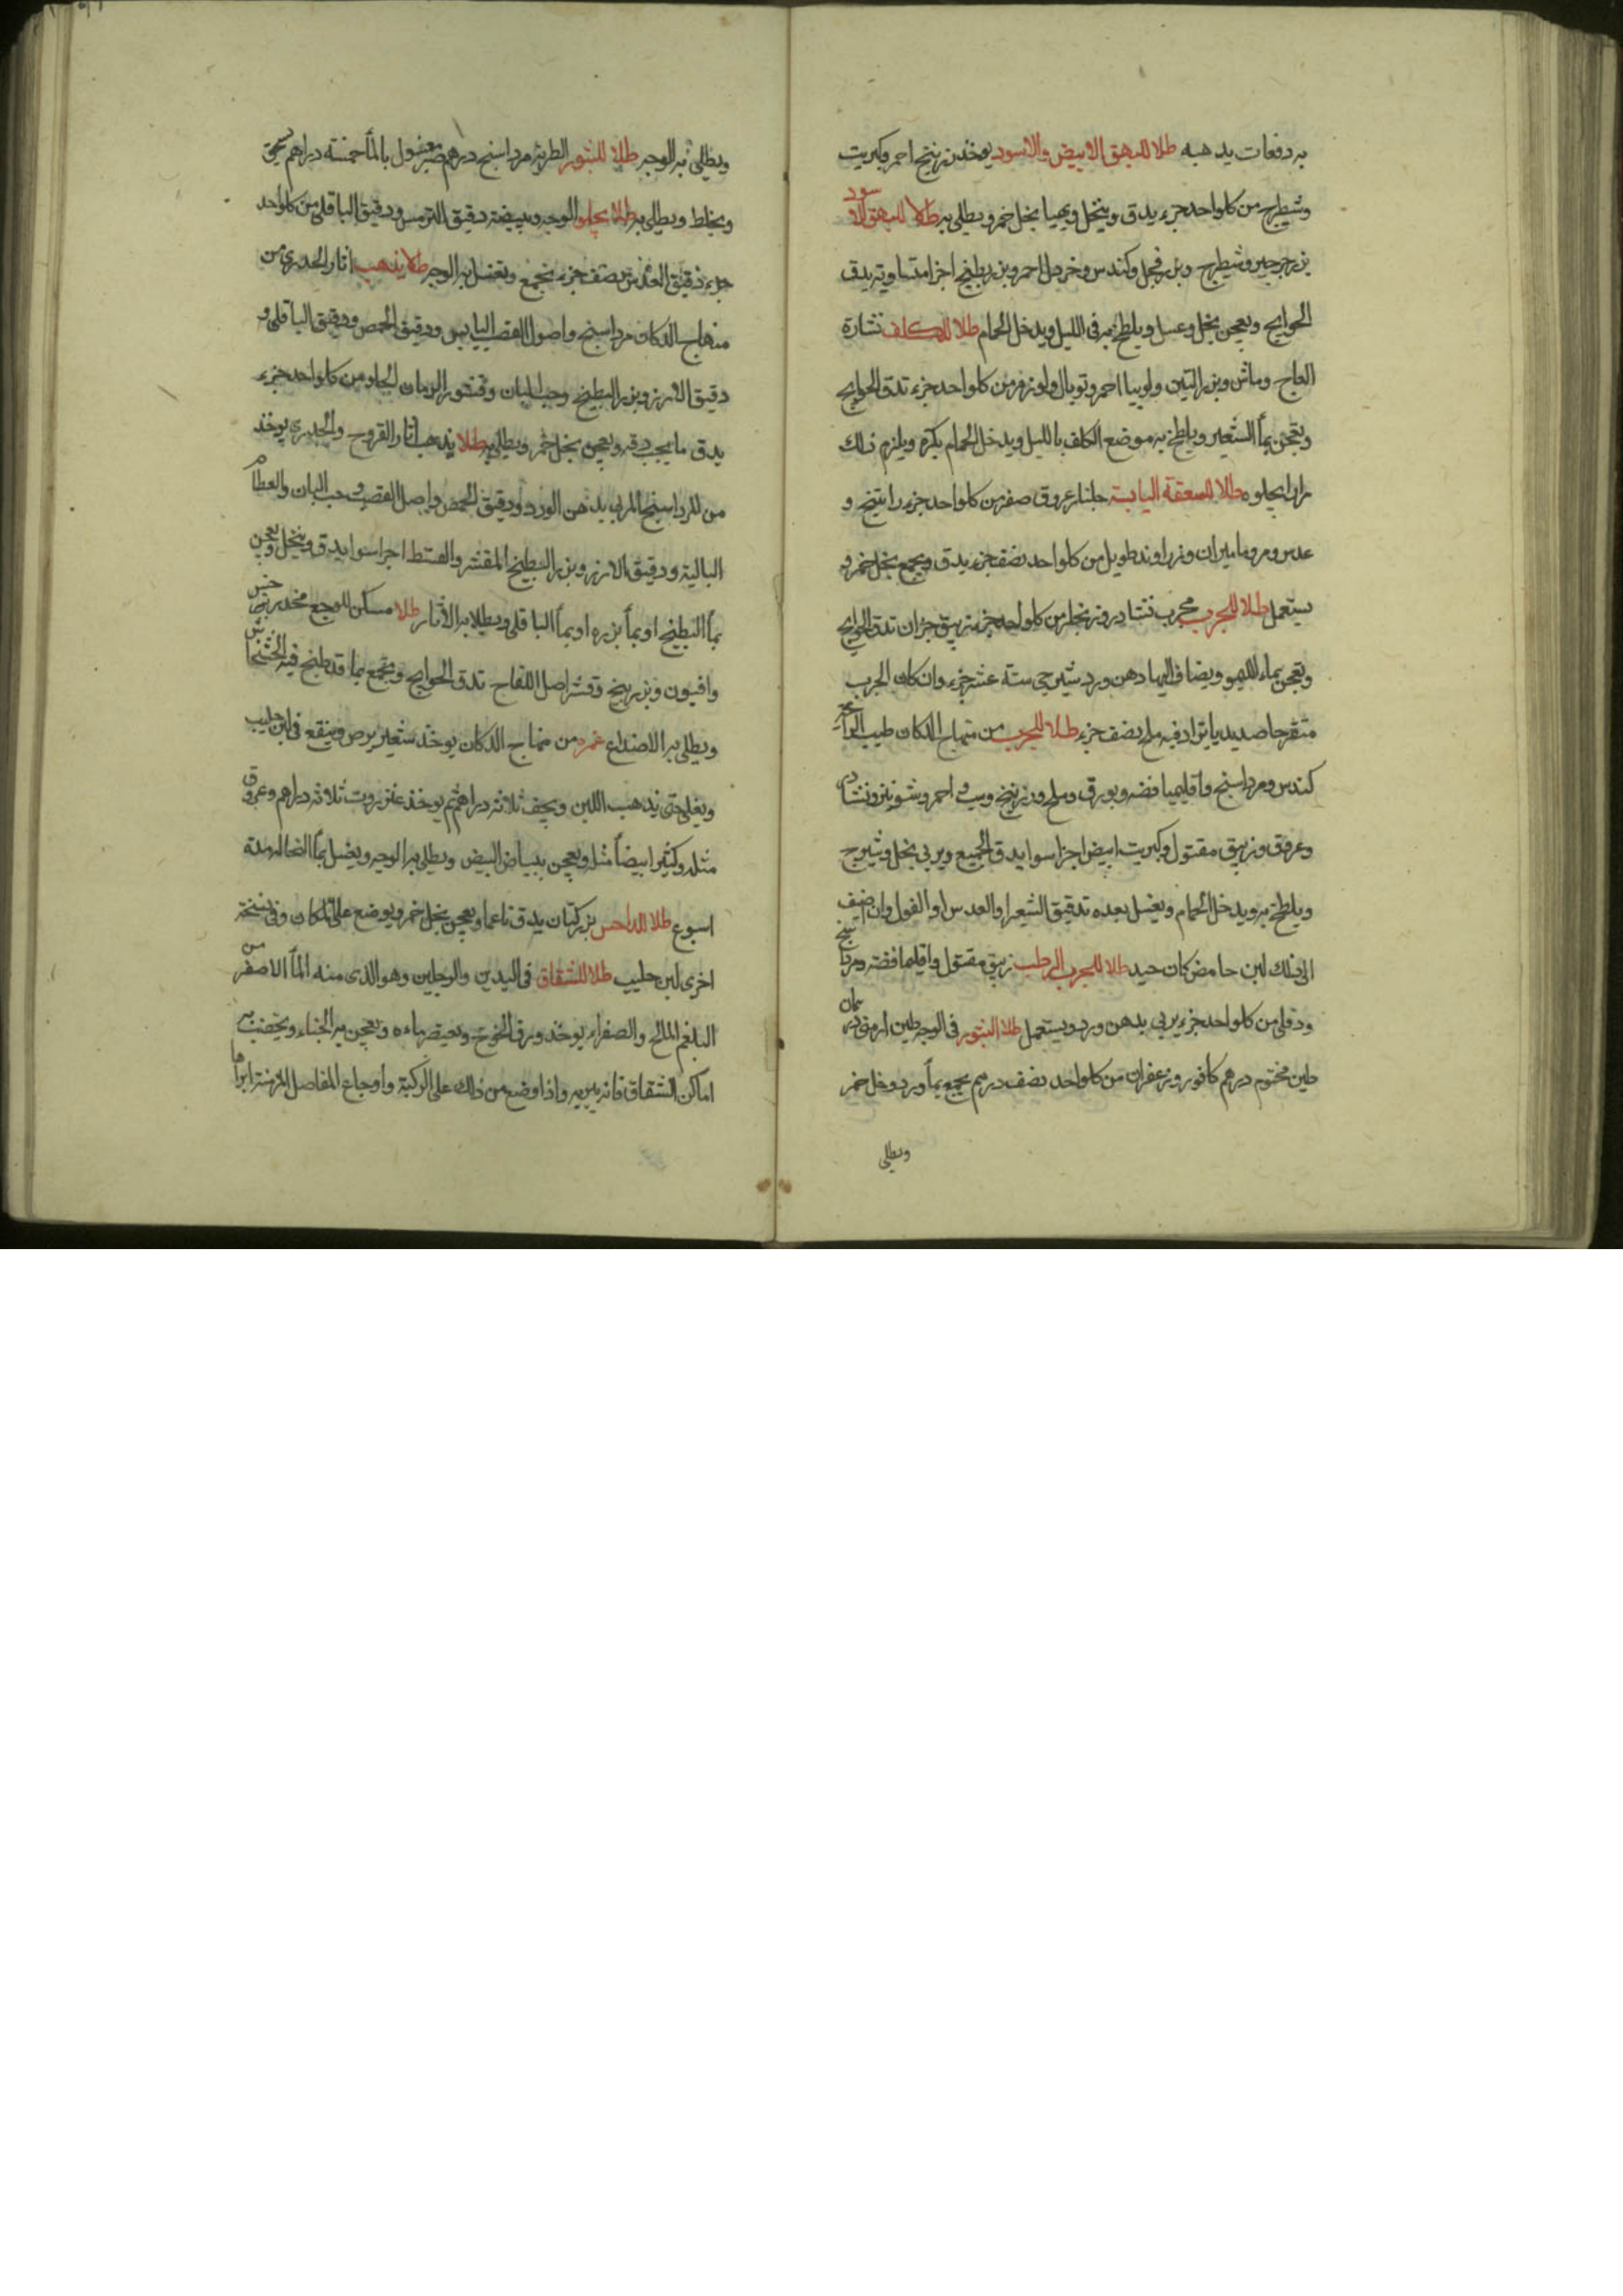 به دفعات يذهبه طلا للبهق الابيض والاسود يوخذ زرنيخ احمر وكبريت
وشيطرج من كل واحد جزء يدق وينخل ويهيا بخل خمر ويطلى به طلا للبهق الاسود
بزر جرجير وشيطرج وبزر فجل وكندس وخردل احمر وبزر بطيخ اجزا متساويه يدق
الحوايج ويعجن بخل وعسل ويلطخ به فى الليل ويدخل الحمام طلا للكلف نشارة
العاج وماش وبزر التين ولوبيا احمر وتوبال ولوز مر من كل واحد جزء تدق الحوايج
ويعجن بمأ الشعير ويلطخ به موضع الكلف بالليل ويدخل الحمام بكره ويلزم ذلك
مرارا يجلوه طلا للسعفة اليابسة جلنار عروق صفر من كل واحد جزء راتينج و
عدس ومر وماميران وزراوند طويل من كل واحد نصف جزء يدق ويجمع بخل خمر و
يستعمل طلا للجرب مجرب نشادر وزنجار من كل واحد جزء زيبق جزان تدق الحوايج
ويعجن بماء الليمو ويضاف اليها دهن ورد شيرجى ستة عشر جزء وان كان الجرب
متقرحا صديديا يزاد فيه ملح نصف جزء طلا للجرب من منهاج الدكان طيب الرائحة
كندس ومرداسنج واقليميا فضه وبورق وملح وزرنيخ احمر وشونيز ونشادر
وعروق وزيبق مقتول وكبريت ابيض اجزا سوا يدق الجميع ويربى بخل وشيرج
ويلطخ به ويدخل الحمام ويغسل بعده بدقيق الشعير او العدس او الفول وان اضيف
الى ذلك لبن حامض كان جيد طلا للجرب الرطب زيبق مقتول واقليميا فضه ومرداسنج
ودفلى من كل واحد جزء يربى بدهن ورد ويستعمل طلا للبثور فى الوجه طين ارمنى درهمان
طين مختوم درهم كافور وزعفران من كل واحد نصف درهم يجمع بمأ ورد وخل خمر
ويطلى
ويطلى به الوجه طلا للبثور الطريه مرداسنج درهم صبر مغسول بالمأ خمسة دراهم يسحق
ويخلط ويطلى به طلا يجلو الوجه ويبيضه دقيق الترمس ودقيق الباقلى من كل واحد
جزء دقيق العدس نصف جزء يجمع ويغسل به الوجه طلا يذهب اثار الجدرى من
منهاج الدكان مرداسنج واصول القصب اليابس ودقيق الحمص ودقيق الباقلى و
دقيق الارز وبزر البطيخ وحب البان وقشور الرمان الحلو من كل واحد جزء
يدق ما يجب دقه ويعجن بخل خمر ويطلى به طلا يذهب اثار القروح والجدرى يوخذ
من المرداسنج المربى بدهن الورد ودقيق الحمص واصل القصب وحب البان والعظام
البالية ودقيق الارز وبزر البطيخ المقشر والقسط اجزا سوا يدق وينخل ويعجن
بمأ البطيخ او بمأ بزره او بمأ الباقلى ويطلا به الاثار طلا مسكن للوجع مخدر بزر خس
وافيون وبزر بنج وقشر اصل اللفاح تدق الحوايج ويجمع بما قد طبخ فيه الخشخاش
ويطلى به الاصداغ غمره من منهاج الدكان يوخذ شعير يرض وينقع فى لبن حليب
ويغلى حتى يذهب اللبن ويجفف ثلاثه دراهم ثم يوخذ عنزروت ثلاثه دراهم وعروق
مثله وكثيرا بيضأ مثله ويعجن ببياض البيض ويطلى به الوجه ويغسل بمأ النخاله مدة
اسبوع طلا للداحس بزر كتان يدق ناعما ويعجن بخل خمر ويوضع على المكان وفى نسخة
اخرى لبن حليب طلا للشقاق فى اليدين والرجلين وهو الذى منه المأ الاصفر من
البلغم المالح والصفراء يوخذ ورق الخوخ ويعيصر ماءه ويعجن به الحناء ويخضب به
اماكن الشقاق فانه يبريه واذا وضع من ذلك على الركبة واوجاع المفاصل المزمنة ابراها